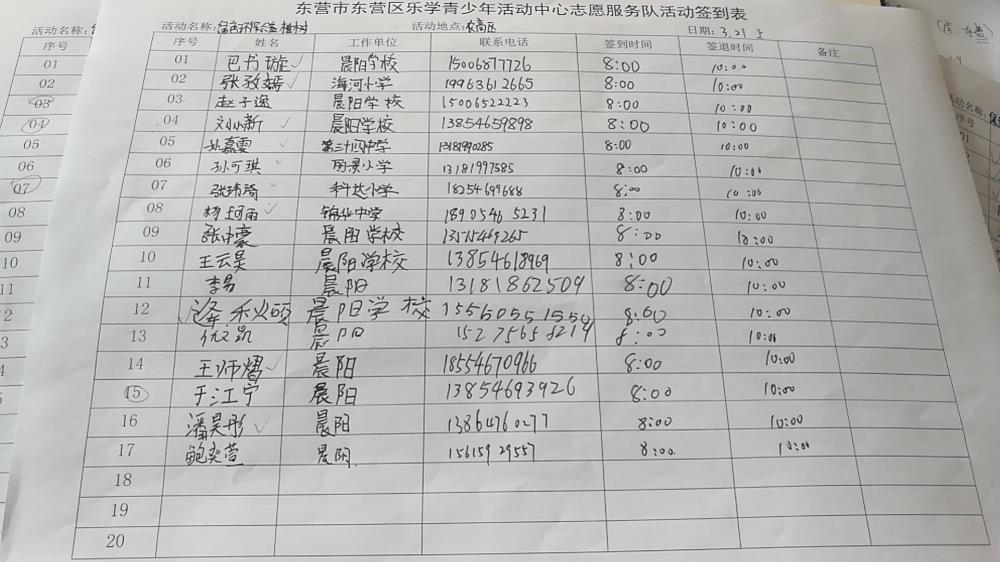 东营市东营区乐学青少年活动中心志愿服务队活动签到表
活动名称: 绿色环保公益 植树 活动地点: 农高区 日期: 3.21 上
序号 姓名 工作单位 联系电话 签到时间 签退时间 备注
01 巴书璇 晨阳学校 15006877726 8:00 10:00
02 张孜嫣 海河小学 19963612665 8:00 10:00
03 赵子逸 晨阳学校 15006522223 8:00 10:00
04 刘小新 晨阳学校 13854659898 8:00 10:00
05 孙嘉雯 第三十四中学 13181990285 8:00 10:00
06 孙可琪 丽景小学 13181997585 8:00 10:00
07 张琦 科达小学 18254699688 8:00 10:00
08 杨雨 锦华中学 18905465231 8:00 10:00
09 张中豪 晨阳学校 13575469265 8:00 10:00
10 王云昊 晨阳学校 13854618969 8:00 10:00
11 李易 晨阳 13181862509 8:00 10:00
12 晨阳学校 15560551550 8:00 10:00
13 晨阳 15275658214 8:00 10:00
14 王师熠 晨阳 18554670966 8:00 10:00
15 于江宁 晨阳 13854693926 8:00 10:00
16 潘昊彤 晨阳 13864760277 8:00 10:00
17 鲍奕萱 晨阳 15615929557 8:00 10:00
18
19
20
活动名称:
序号
01
02
03
04
05
06
07
08
09
10
11
12
13
14
活动名称:
序号